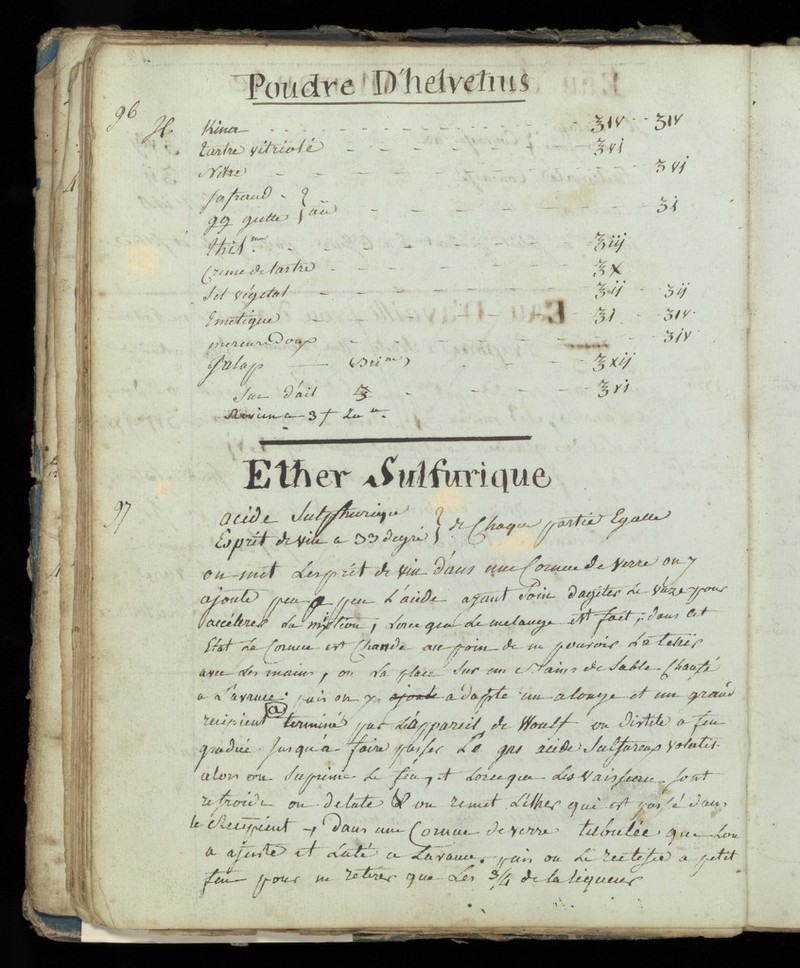 Poudre D'helvetius
96
Kina ʒiv ʒiv
tartre vitriolé ʒvi
Nitre ʒvi
Safrand
gg gutte } aä ʒi
ʒiij
Creme de tartre ʒx
Sel végetal ʒij ʒij
Emetique ʒi ʒiv
mercure Doux ʒiv
Jalap ʒxij
Suc d'ail ʒvi
Ether Sulfurique
97
acide Sulphurique
Esprit de vin a 33 degré } de Chaque partie Egalle
on met L'esprit de vin dans une Cornue de verre on y
ajoute peu a peu L'acide ayant soin d'agiter Le vaze pour
accélerer La mixtion, Lorceque Le melange est fait; dans cet
Etat La Cornue est Chaude au poin de ne pouvoir La tenir
avec Les mains, on La place sur un Bains de sable Chaufé
a L'avance. puis on y ajoute adapte un alonge et un grand
recipient (a) terminé par L'appareil de Woulf on Distile a feu
gradué jusqu'a faire passer Le gas acide Sulfureux volatil.
alors on suprime Le feu, et Lorceque Les vaisseaux sont
refroidi on delute & on remet L'ether qui est passé dans
le Recipient, Dans une Cornue de verre tubulée que Lon
a ajusté et Luté a Lavance. puis on Le rectifie a petit
feu pour ne retirer que Les 3/4 de la liqueur